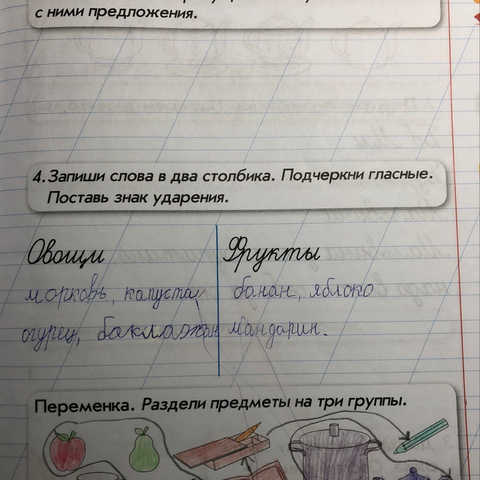 с ними предложения.
4. Запиши слова в два столбика. Подчеркни гласные.
Поставь знак ударения.
Овощи
морковь, капуста
огурец, баклажан
Фрукты
банан, яблоко
мандарин.
Переменка. Раздели предметы на три группы.